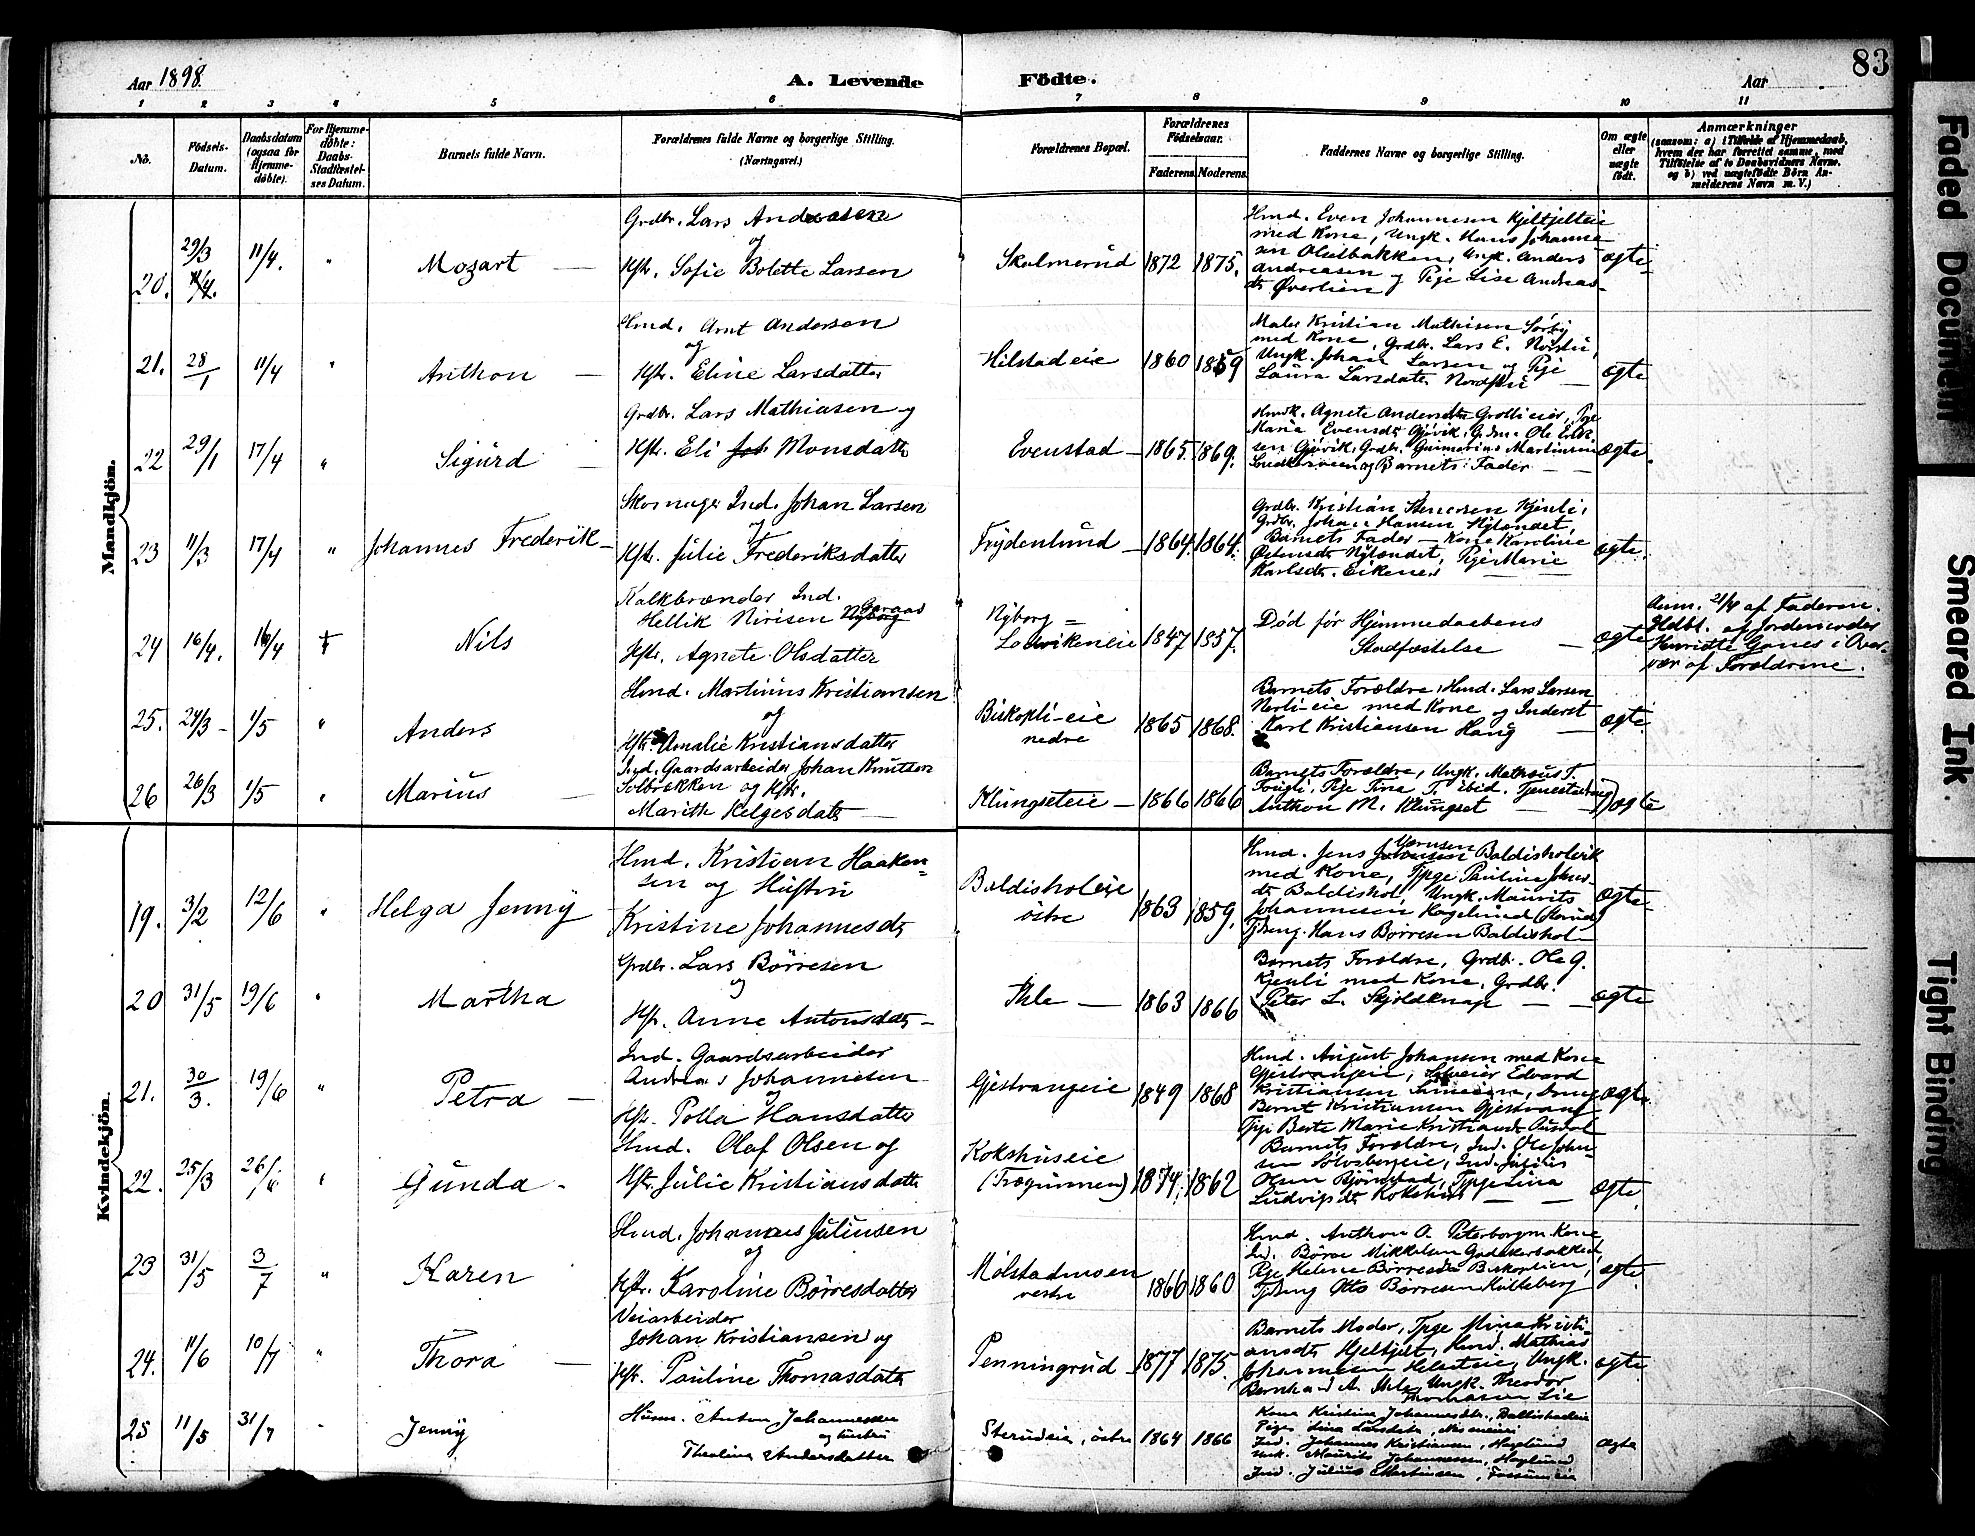 Aar 1898.
A. Levende Födte.
Aar
83
1 2 3 4 5 6 7 8 9 10 11
No.
Födsels-Datum.
Daabsdatum (ogsaa for Hjemme-döbte).
For Hjemme-döbte: Daabs-Stadfæstel-ses Datum.
Barnets fulde Navn.
Forældrenes fulde Navne og borgerlige Stilling. (Næringsvei.)
Forældrenes Bopæl.
Forældrenes Födselsaar.
Faderens. Moderens.
Faddernes Navne og borgerlige Stilling.
Om ægte eller uægte födt.
Anmærkninger
(saasom: a) i Tilfælde af Hjemmedaab, hvem der har forrettet samme, med Tilföielse af to Daabsvidners Navne, og b) ved uægtefödte Börn An-melderens Navn m. V.)
Mandkjön.
20. 29/3 11/4. " Mozart —
Grdbr. Lars Andreasen
og
Hstr. Sofie Bolette Larsen
Skolmerud 1872 1875.
Hmd. Even Johannesen Kjeltjelteie
med Kone, Ungk. Hans Johanne
sen Olielbakken, Ungk. Anders
Andreasen og Pige Lise Andreas-
dtr Øverlien
ægte
21. 28/1 11/4 " Anthon —
Hmd. Arnt Andersen
og
Hstr. Eline Larsdatter
Hilstadeie 1860 1859
Maler Kristian Mathisen Sørby
med Kone, Grdbr. Lars E. Nordlie,
Ungk. Johan Larsen og Pige
Laura Larsdatr. Nordlie —
ægte
22 29/1 17/4 " Sigurd —
Grdbr. Lars Mathiasen og
Hstr. Eli Monsdatter
Evenstad — 1865. 1869.
Maria Evensdtr Gjøvik, Ole
sen Gjøvik, Grdbr. Gunnerius Martinsen
og Barnets Fader —
ægte.
23 11/3 17/4 " Johannes Frederik —
Skomager Ind. Johan Larsen
og
Hstr. Julie Frederiksdatter
Frydenlund — 1864. 1864.
Grdbr. Kristian Stenersen Kjenli,
Grdbr. Johan Hansen Nylandet,
Barnets Fader — Kone Karoline
Østensdr Nylandet, Pige Marie
Karlsdtr. Eikenes —
ægte.
24 16/4. 16/4 + Nils
Kalkbrænder Ind.
Hellik Nirisen Garaas
Hstr. Agnete Olsdatter
Nyborg =
Lodvikeneie 1847 1857.
Død før Hjemmedaabens
Stadfæstelse —
ægte
Anm. 21/4 af Faderen.
Hdbt. af Jordemoder
Henridte Ganes i Over-
vær af Forældrene.
25. 24/3 - 1/5 " Anders
Hmd. Martinius Kristiansen
og
Hstr. Amalie Kristiansdatter
Biskopli-eie
nedre 1865 1868.
Barnets Forældre, Hmd. Lars Larsen
Nerlieie med Kone og Inderst
Karl Kristiansen Haug —
ægte.
26 26/3 1/5 " Marius —
Ind. Gaardsarbeider Johan Knutsen
Solbrækken og Hstr.
Marithe Helgesdatr —
Klungseteie — 1866 1866
Barnets Forældre, Ungk. Matheus T.
Pige Tina T. ibid. Tjenestedreng
Anthon M. Klungset —
ægte
Kvindekjön.
19. 3/2 12/6 " Helga Jenny
Hmd. Kristian Haaken-
sen og Hustru
Kristine Johannesdr
Baldisholeie
østre 1863 1859.
Hmd. Jens Baldisholeie
med Kone, Tpge Pauline Johns-
dr Baldishol, Ungk. Maurits
Johannesen Haglund
Tjdreng. Hans Børresen Baldishol —
ægte
20 31/5 19/6 " Martha
Grdbr. Lars Børresen
og
Hstr. Anne Antonsdtr —
Ihle — 1863 1866
Barnets Forældre, Grdbr. Ole G.
Kjenli med Kone, Grdbr.
Peter L. Skjoldknap — —
ægte
21. 30/3. 19/6 " Petra —
Ind. Gaardsarbeider
Andreas Johannesen
og
Hstr. Polla Hansdatter
Gjestvangeie 1849 1868
Hmd. August Johansen med Kone
Gjestvangeie, Edvard
Kristiansen
Bernt Kristiansen Gjestvang
Tpge Berte Marie Kristiansdr
ægte.
22. 25/3 26/6 " Gunda -
Hmd. Olaf Olsen og
Hstr. Julie Kristiansdatter
Kokshuseie
(Træginnen) 1874. 1862
Barnets Forældre, Ind. Ole Johan-
sen Solvsbergeie, Ind. Julius
Olsen Bjørnstad, Tpge Lina
Ludvigsdtr Kokshus — —
ægte.
23 31/5 3/7 " Karen
Hmd. Johannes Juliusen
og
Hstr. Karoline Børresdatter
Mølstadmoen
vestre 1866 1860
Hmd. Anthon O. Peterborg m Kone
Ind. Børre Mikkelsen
Pige Helene Børresdr Biskoplien,
Tjdreng Otto Børresen Hilleberg
ægte
24. 11/6 10/7 " Thora —
Veiarbeider
Johan Kristiansen og
Hstr. Pauline Thomasdatr
Penningrud 1877 1875.
Barnets Moder, Tpge Mina Kristi-
ansdtr Hjeltjelt, Hmd. Mathias
Johannesen Ungk.
Bernhard A. Ihle, Ungk. Theodor
Thomasen Lie
ægte
25 11/5 31/7 " Jenny
Husm. Anton Johannessen
og hustru
Theoline Andersdatter
Sterudeie, østre 1864 1866
Kone Kristine Johannesdtr., Baldisholeie
Pige Lina Larsdatr.,
Ind. Johannes Kristiansen, Haglund
Ungk. Maurits Johannessen, Haglund
Ind. Julius Martinsen,
ægte
Faded Document
Smeared Ink.
Tight Binding